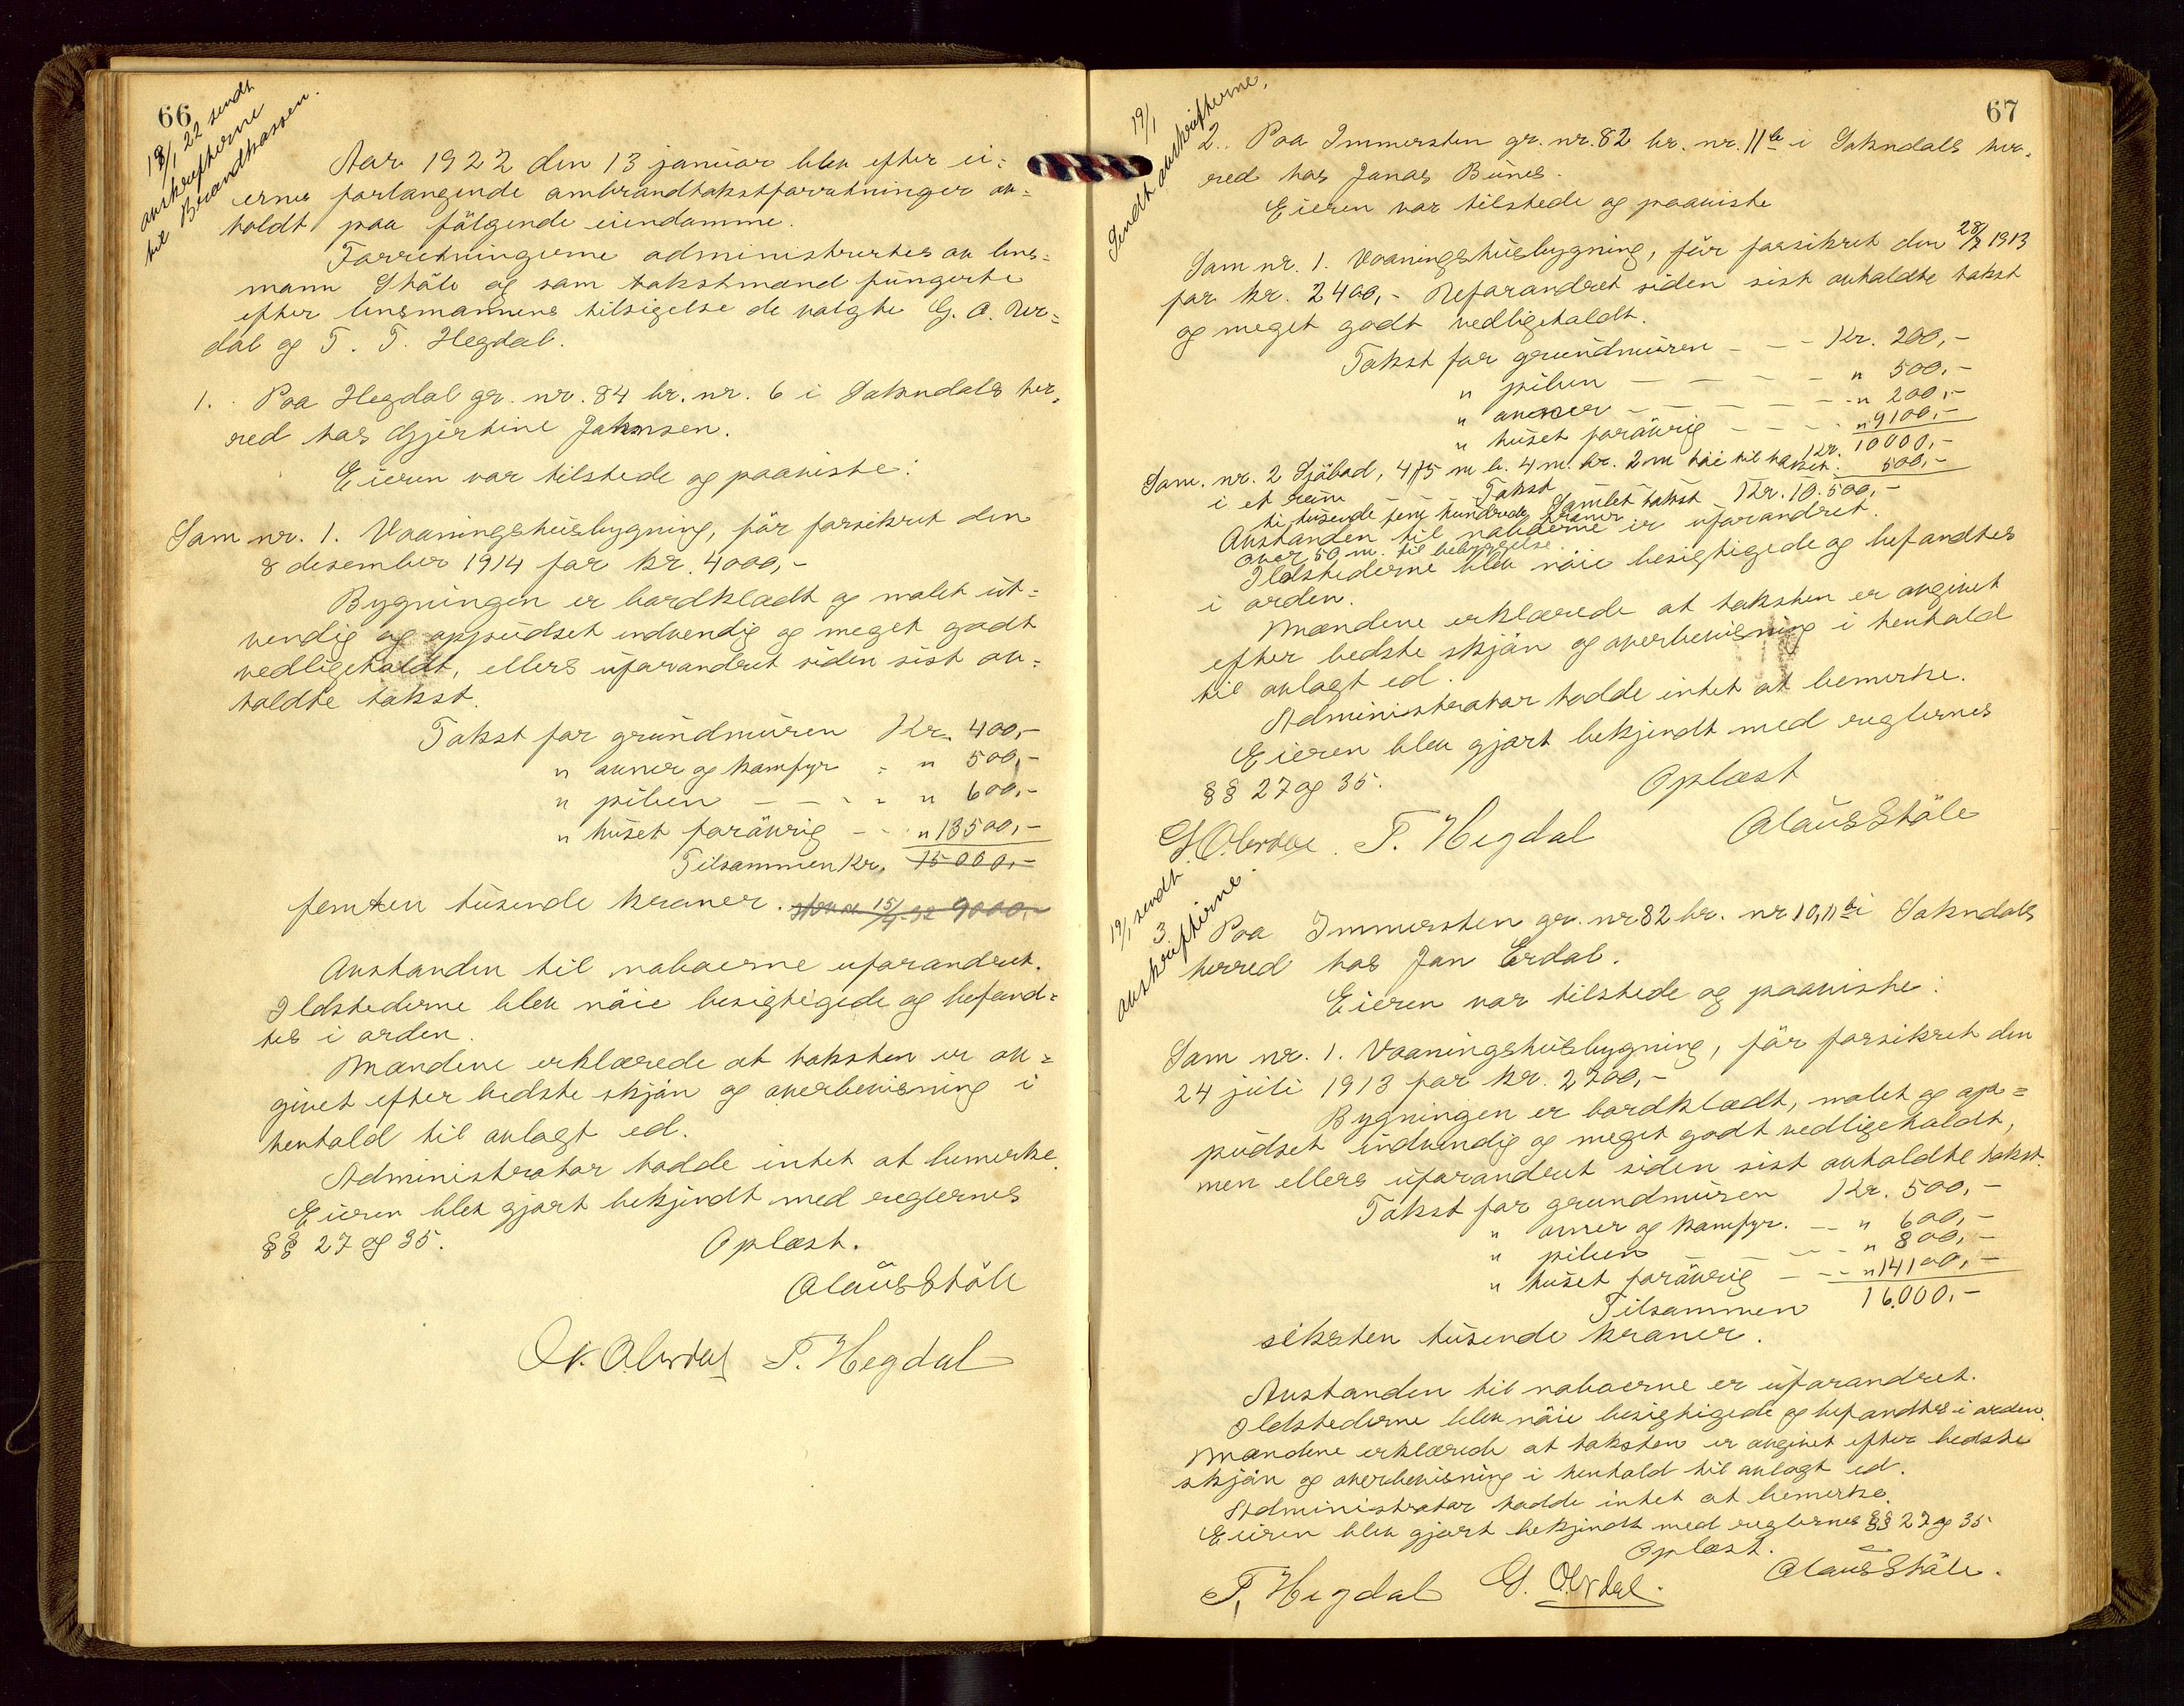 66
18/1 22 sendt
avskrifterne
til Brandkassen.
Aar 1922 den 13 januar blev efter ei=
ernes forlangende ombrandtakstforretninger av=
holdt paa følgende eiendomme.
Forretningerne administrertes av lens=
mann Ståle og som takstmænd fungerte
efter lensmannens tilsigelse de valgte G. O. Ver=
dal og T. T. Hegdal.
1. Paa Hegdal gr. nr. 84 br. nr. 6 i Sokndals her,
red hos Gjertine Johnsen.
Eieren var tilstede og paaviste:
Som nr. 1. Vaaningshusbygning, før forsikret den
8 desember 1914 for kr. 4000,-
Bygningen er bordklædt og malet ut=
vendig og oppudset indvendig og meget godt
vedligeholdt, ellers uforandret siden sist av=
holdte takst.
Takst for grundmuren Kr. 400,-
" ovner og komfyr - " 500,-
" pipen - - - - " 600,-
" huset forøvrig - - " 13500,-
Tilsammen Kr. 15000,-
femten tusende kroner. 15/4-32 9000,-
Avstanden til naboerne uforandret.
Ildstederne blev nøie besigtigede og befand=
tes i orden.
Mændene erklærede at taksten er av=
givet efter bedste skjøn og overbevisning i
henhold til avlagt ed.
Administrator hadde intet at bemerke.
Eieren blev gjort bekjendt med reglernes
§§ 27 og 35. Oplæst.
Olaus Ståle
T. Hegdal
67
19/1
Sendt avskrifterne.
2. Paa Immersten gr. nr. 82 br. nr. 11 b i Sokndals her,
red hos Jonas Bunes.
Eieren var tilstede og paaviste
Som nr. 1. Vaaningshusbygning, før forsikret den 28/7 1913
for kr. 2400,- Reforandret siden sist avholdte takst
og meget godt vedligeholdt.
Takst for grundmuren - - - Kr. 200,-
" pipen - - - - - " 500,-
" ovner - - - - - " 200,-
" huset forøvrig - - - " 9100,-
Kr. 10000,-
Som nr. 2 Sjøbod, 4,75 m l. 4 m. br. 2 m høi til taket. 500,-
i et reim Takst
Samlet takst Kr. 10.500,-
ti tusende fem hundrede kroner
Avstanden til naboerne er uforandret.
over 50 m. til bebyggelse.
Ildstederne blev nøie besigtigede og befandtes
i orden.
Mændene erklærede at taksten er avgivet
efter bedste skjøn og overbevisning i henhold
til avlagt ed.
Administrator hadde intet at bemerke.
Eieren blev gjort bekjendt med reglernes
§§ 27 og 35. Oplæst
T. Hegdal Olaus Ståle
19/1 sendt
avskrifterne.
3. Paa Immersten gr. nr 82 br. nr 10, 11 b i Sokndals
herred hos Jan Erdal.
Eieren var tilstede og paaviste:
Som nr. 1. Vaaningshusbygning, før forsikret den
24 juli 1913 for kr. 2700,-
Bygningen er bordklædt, malet og op=
pudset indvendig og meget godt vedligeholdt,
men ellers uforandret siden sist avholdte takst.
Takst for grundmuren Kr. 500,-
" ovner og komfyr. - - " 600,-
" pipen - - - " 800,-
" huset forøvrig - - - " 14100,-
Tilsammen 16.000,-
seksten tusende kroner.
Avstanden til naboerne er uforandret.
Ildstederne blev nøie besigtigede og befandtes i orden.
Mændene erklærede at taksten er avgivet efter bedste
skjøn og overbevisning i henhold til avlagt ed.
Administrator hadde intet at bemerke.
Eieren blev gjort bekjendt med reglernes §§ 27 og 35
Oplæst.
T. Hegdal Olaus Ståle.